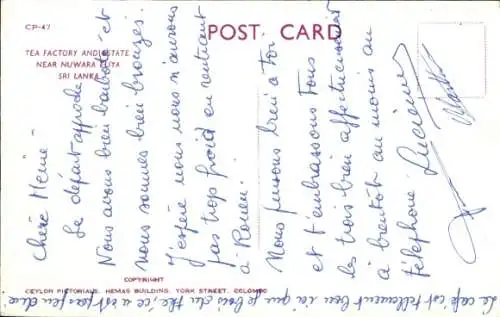 CP-47
POST CARD
TEA FACTORY AND ESTATE
NEAR NUWARA ELIYA
SRI LANKA
Chère Mémé
Le départ approche
Nous avons bien barboté et
nous sommes bien bronzés.
J'espère nous nous n'aurons
pas trop froid en rentrant
à Rouen.
Nous pensons bien à toi
et t'embrassons tous
les trois bien affectueusement
à bientôt au moins au
téléphone
Lucienne
COPYRIGHT
CEYLON PICTORIALS, HEMAS BUILDING, YORK STREET, COLOMBO
Le café est tellement bon ici que je bois du thé, ce n'est pas peu dire